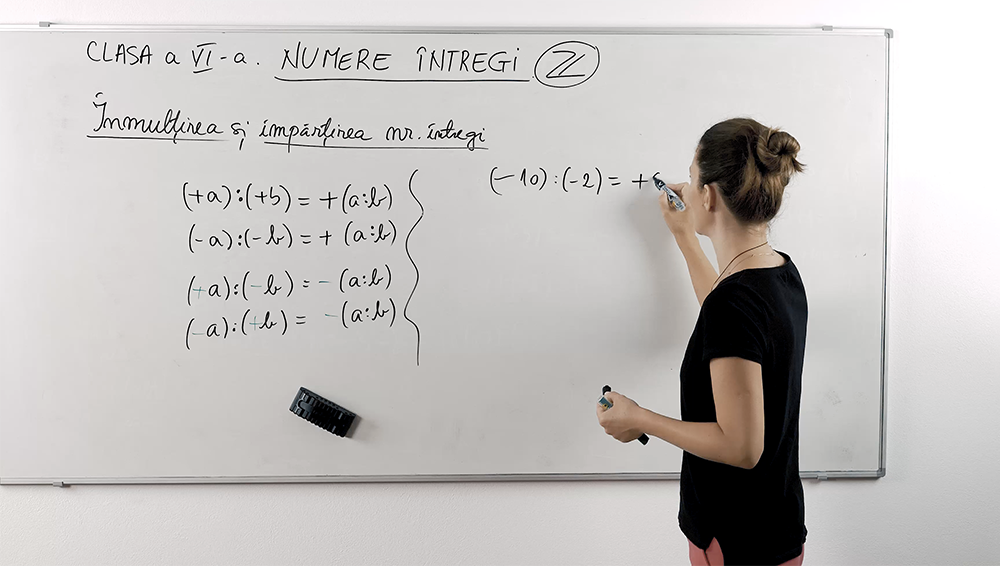 CLASA a VI-a. NUMERE ÎNTREGI ℤ
Înmulțirea și împărțirea nr. întregi
(+a):(+b) = +(a:b)
(-a):(-b) = + (a:b)
(+a):(-b) = -(a:b)
(-a):(+b) = -(a:b)
(-10):(-2) = +